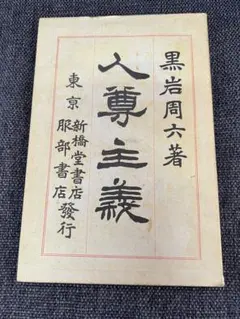 黒岩周六著
人尊主義
東京 新橋堂書店
服部書店 發行